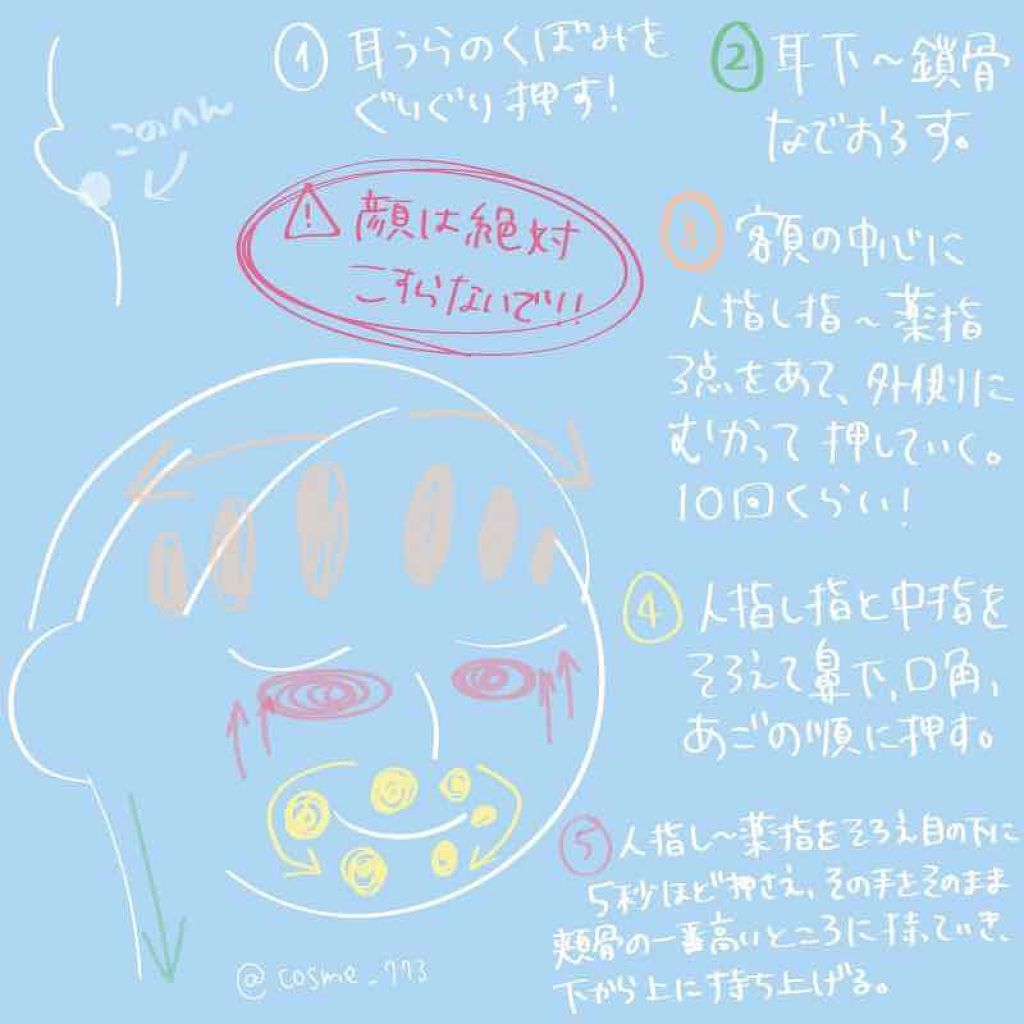 ① 耳うらのくぼみを
ぐりぐり押す!
このへん
② 耳下~鎖骨
なでおろす。
⚠ 顔は絶対
こすらないで!!
③ 額の中心に
人指し指~薬指
3点をあて、外側に
むかって押していく。
10回くらい!
④ 人指し指と中指を
そろえて鼻下、口角、
あごの順に押す。
⑤ 人指し~薬指をそろえ目の下に
5秒ほど押さえ、その手をそのまま
頬骨の一番高いところに持っていき、
下から上に持ち上げる。
@cosme_773